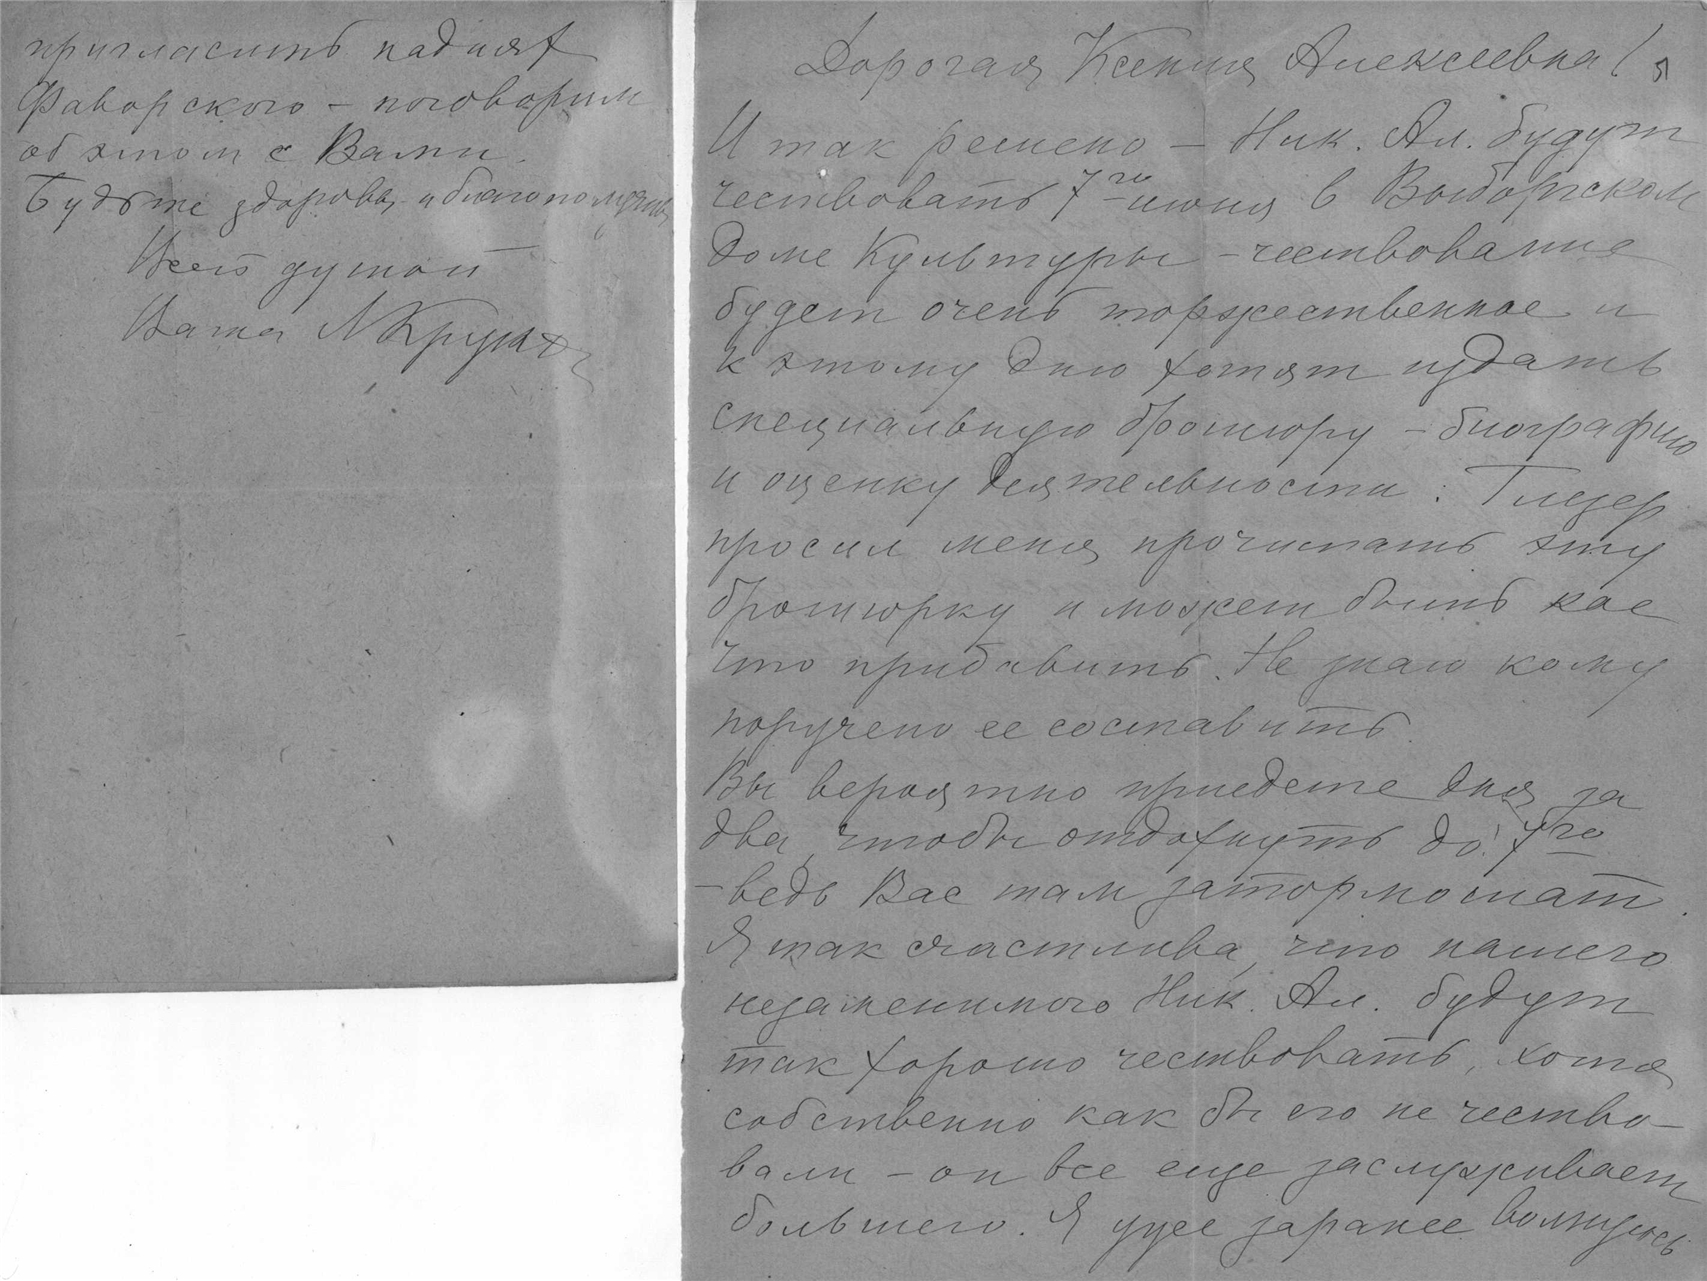 пригласить на днях
Фаворского – поговорим
об этом с Вами.
Будьте здоровы и благополучны
Всей душой
Ваша
Дорогая Ксения Алексеевна!
И так решено – Ник. Ал. будут
чествовать 7го июня в Выборгском
Доме Культуры – чествование
будет очень торжественное и
к этому дню хотят издать
специальную брошюру – биографию
и оценку деятельности. Глезер
просил меня прочитать эту
брошюрку и может быть кое
что прибавить. Не знаю кому
поручено ее составить.
Вы вероятно приедете дня за
два, чтобы отдохнуть до 7го
– ведь Вас там затормошат.
Я так счастлива, что нашего
незаменимого Ник. Ал. будут
так хорошо чествовать, хотя
собственно как бы его не чество–
вали – он все еще заслуживает
большего. Я уже заранее волнуюсь